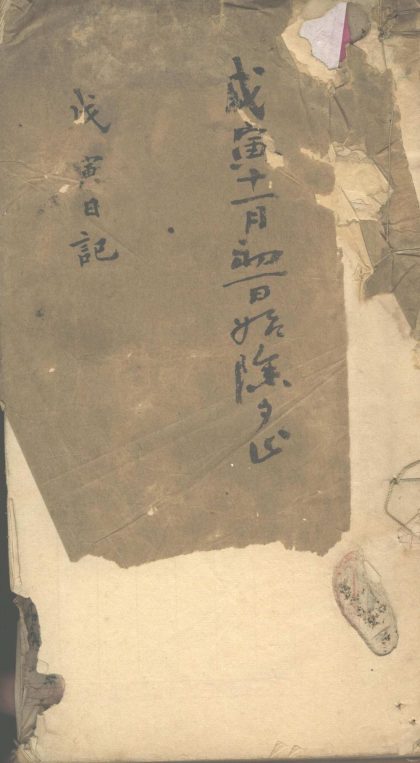 戊寅十一月初一日始除夕止
戊寅日記